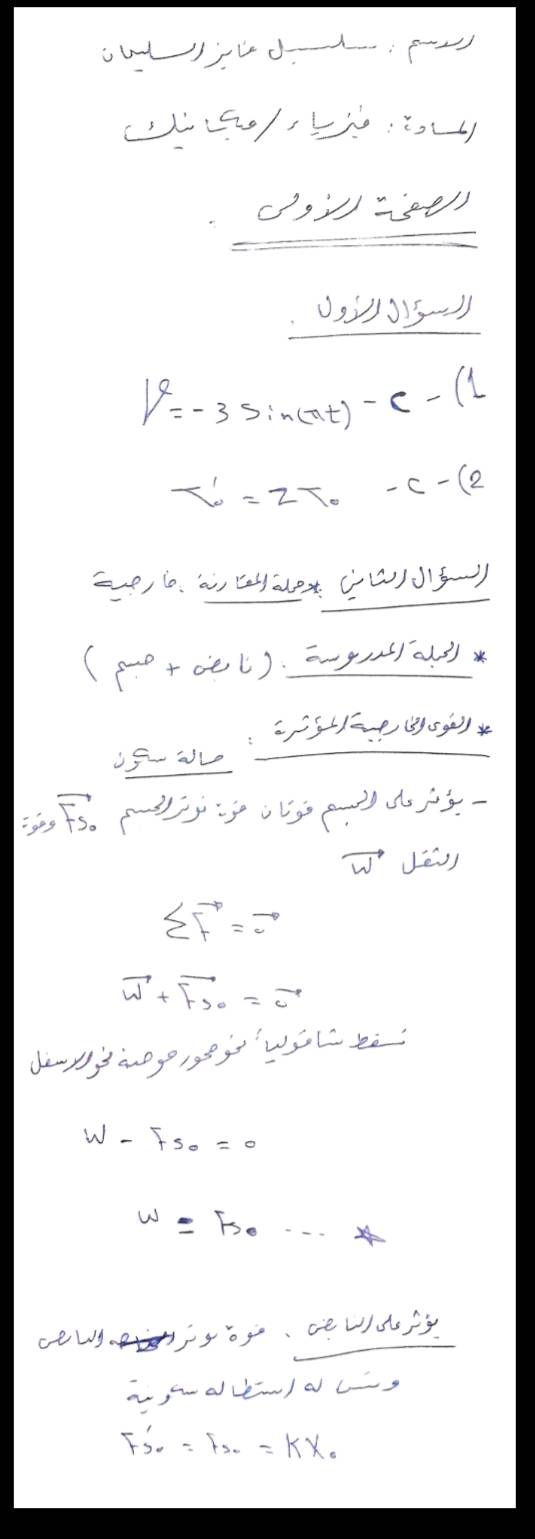 الاسم : سلسبيل فايز السليمان
المادة : فيزياء / ميكانيك
الصفحة الأولى .
السؤال الأول .
1) - c - V = -3 Sin(πt)
2) - c - T₀' = 2T₀
السؤال الثاني * جملة المقارنة : خارجية
* الجملة المدروسة : (نابض + جسم)
* القوى الخارجية المؤثرة : حالة سكون
- يؤثر على الجسم قوتان قوة توتر الجسم Fs₀ وقوة
الثقل W
ΣF = 0
W + Fs₀ = 0
نسقط شاقولياً نحو محور موجه نحو الاسفل
W - Fs₀ = 0
W = Fs₀ ... *
يؤثر على النابض . قوة توتر النابض
له استطاله سكونية
Fs₀' = Fs₀ = KX₀